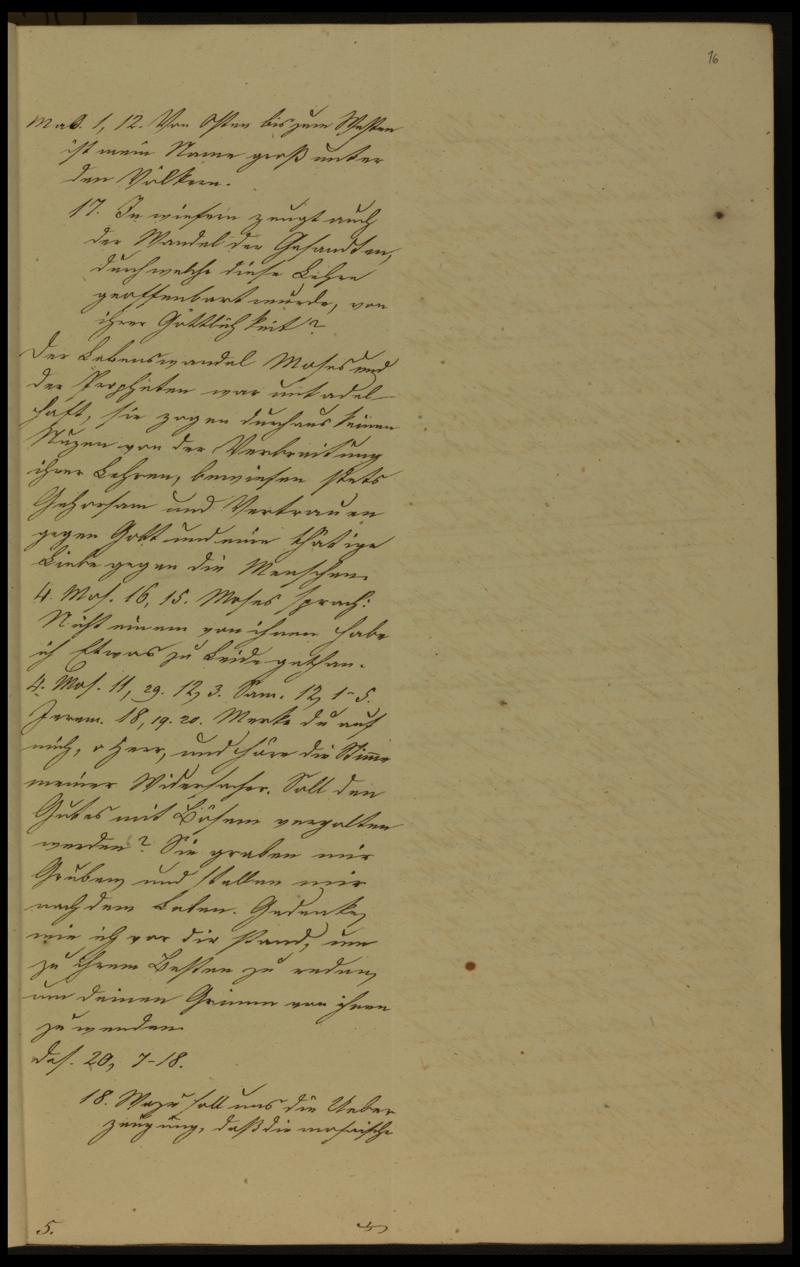 16
Mal. 1, 12. Von Osten bis zum Westen
ist mein Name groß unter
den Völkern.
17. In wiefern zeugt auch
der Wandel der Gesandten,
durch welche diese Lehre
geoffenbart wurde, von
ihrer Göttlichkeit?
Der Lebenswandel Moses und
der Propheten war untadel-
haft, sie zogen durchaus keinen
Nuzen von der Verbreitung
ihrer Lehren, bewiesen stets
Gehorsam und Vertrauen
gegen Gott und eine thätige
Liebe gegen die Menschen.
4. Mos. 16, 15. Moses sprach:
Nicht einem von ihnen habe
ich Etwas zu Leide gethan.
4. Mos. 11, 29. 12, 3. Sam. 12, 1-5.
Jerem. 18, 19. 20. Merke du auf
mich, o Herr, und höre die Stimme
meiner Widersacher. Soll den
Gutes mit Bösem vergolten
werden? Sie graben mir
Gruben, und stellen mir
nach dem Leben. Gedenke,
wie ich vor dir stand, um
zu ihrem Besten zu reden,
um deinen Grimm von ihnen
zu wenden.
das. 20, 7-18.
18. Wozu soll uns die Ueber
zeugung, daß die mosaische
5.